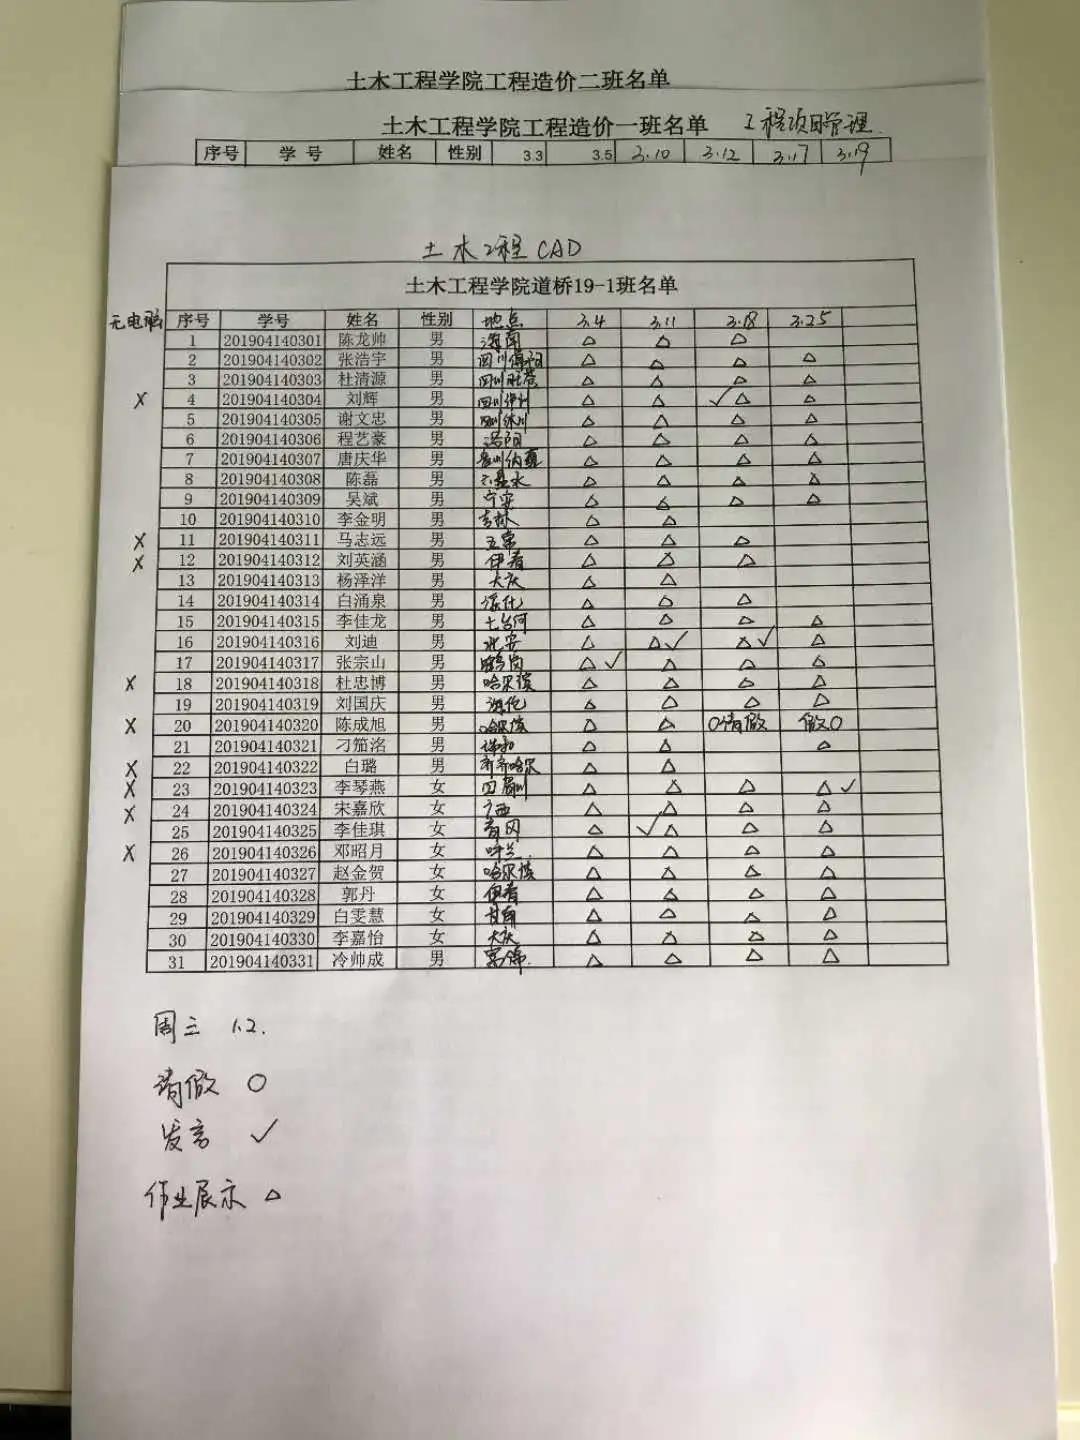 土木工程学院工程造价二班名单
土木工程学院工程造价一班名单 工程项目管理
序号 学号 姓名 性别 3.3 3.5 3.10 3.12 3.17 3.19
土木工程CAD
土木工程学院道桥19-1班名单
无电脑 序号 学号 姓名 性别 地点 3.4 3.11 3.18 3.25
1 201904140301 陈龙帅 男 海南 △ △ △
2 201904140302 张浩宇 男 四川绵阳 △ △ △ △
3 201904140303 杜清源 男 四川旺苍 △ △ △ △
X 4 201904140304 刘辉 男 四川 △ △ ✓△ △
5 201904140305 谢文忠 男 △ △ △ △
6 201904140306 程艺豪 男 洛阳 △ △ △ △
7 201904140307 唐庆华 男 贵州纳雍 △ △ △ △
8 201904140308 陈磊 男 △ △ △ △
9 201904140309 吴斌 男 宁安 △ △ △ △
10 201904140310 李金明 男 吉林 △ △
X 11 201904140311 马志远 男 五常 △ △ △
X 12 201904140312 刘英涵 男 伊春 △ △ △
13 201904140313 杨泽洋 男 大庆 △ △
14 201904140314 白涌泉 男 绥化 △ △ △
15 201904140315 李佳龙 男 七台河 △ △ △ △
16 201904140316 刘迪 男 北安 △ △✓ △✓ △
17 201904140317 张宗山 男 鹤岗 △✓ △ △ △
X 18 201904140318 杜忠博 男 哈尔滨 △ △ △ △
19 201904140319 刘国庆 男 海伦 △ △ △ △
X 20 201904140320 陈成旭 男 哈尔滨 △ △ O请假 假O
21 201904140321 刁笳洺 男 △ △ △
X 22 201904140322 白璐 男 齐齐哈尔 △ △
X 23 201904140323 李琴燕 女 △ △ △ △✓
X 24 201904140324 宋嘉欣 女 广西 △ △ △ △
25 201904140325 李佳琪 女 青冈 △ ✓△ △ △
X 26 201904140326 邓昭月 女 呼兰 △ △ △ △
27 201904140327 赵金贺 女 哈尔滨 △ △ △ △
28 201904140328 郭丹 女 伊春 △ △ △ △
29 201904140329 白雯慧 女 甘南 △ △ △ △
30 201904140330 李嘉怡 女 大庆 △ △ △ △
31 201904140331 冷帅成 男 富锦 △ △ △ △
周三 1.2.
请假 O
发言 ✓
作业展示 △